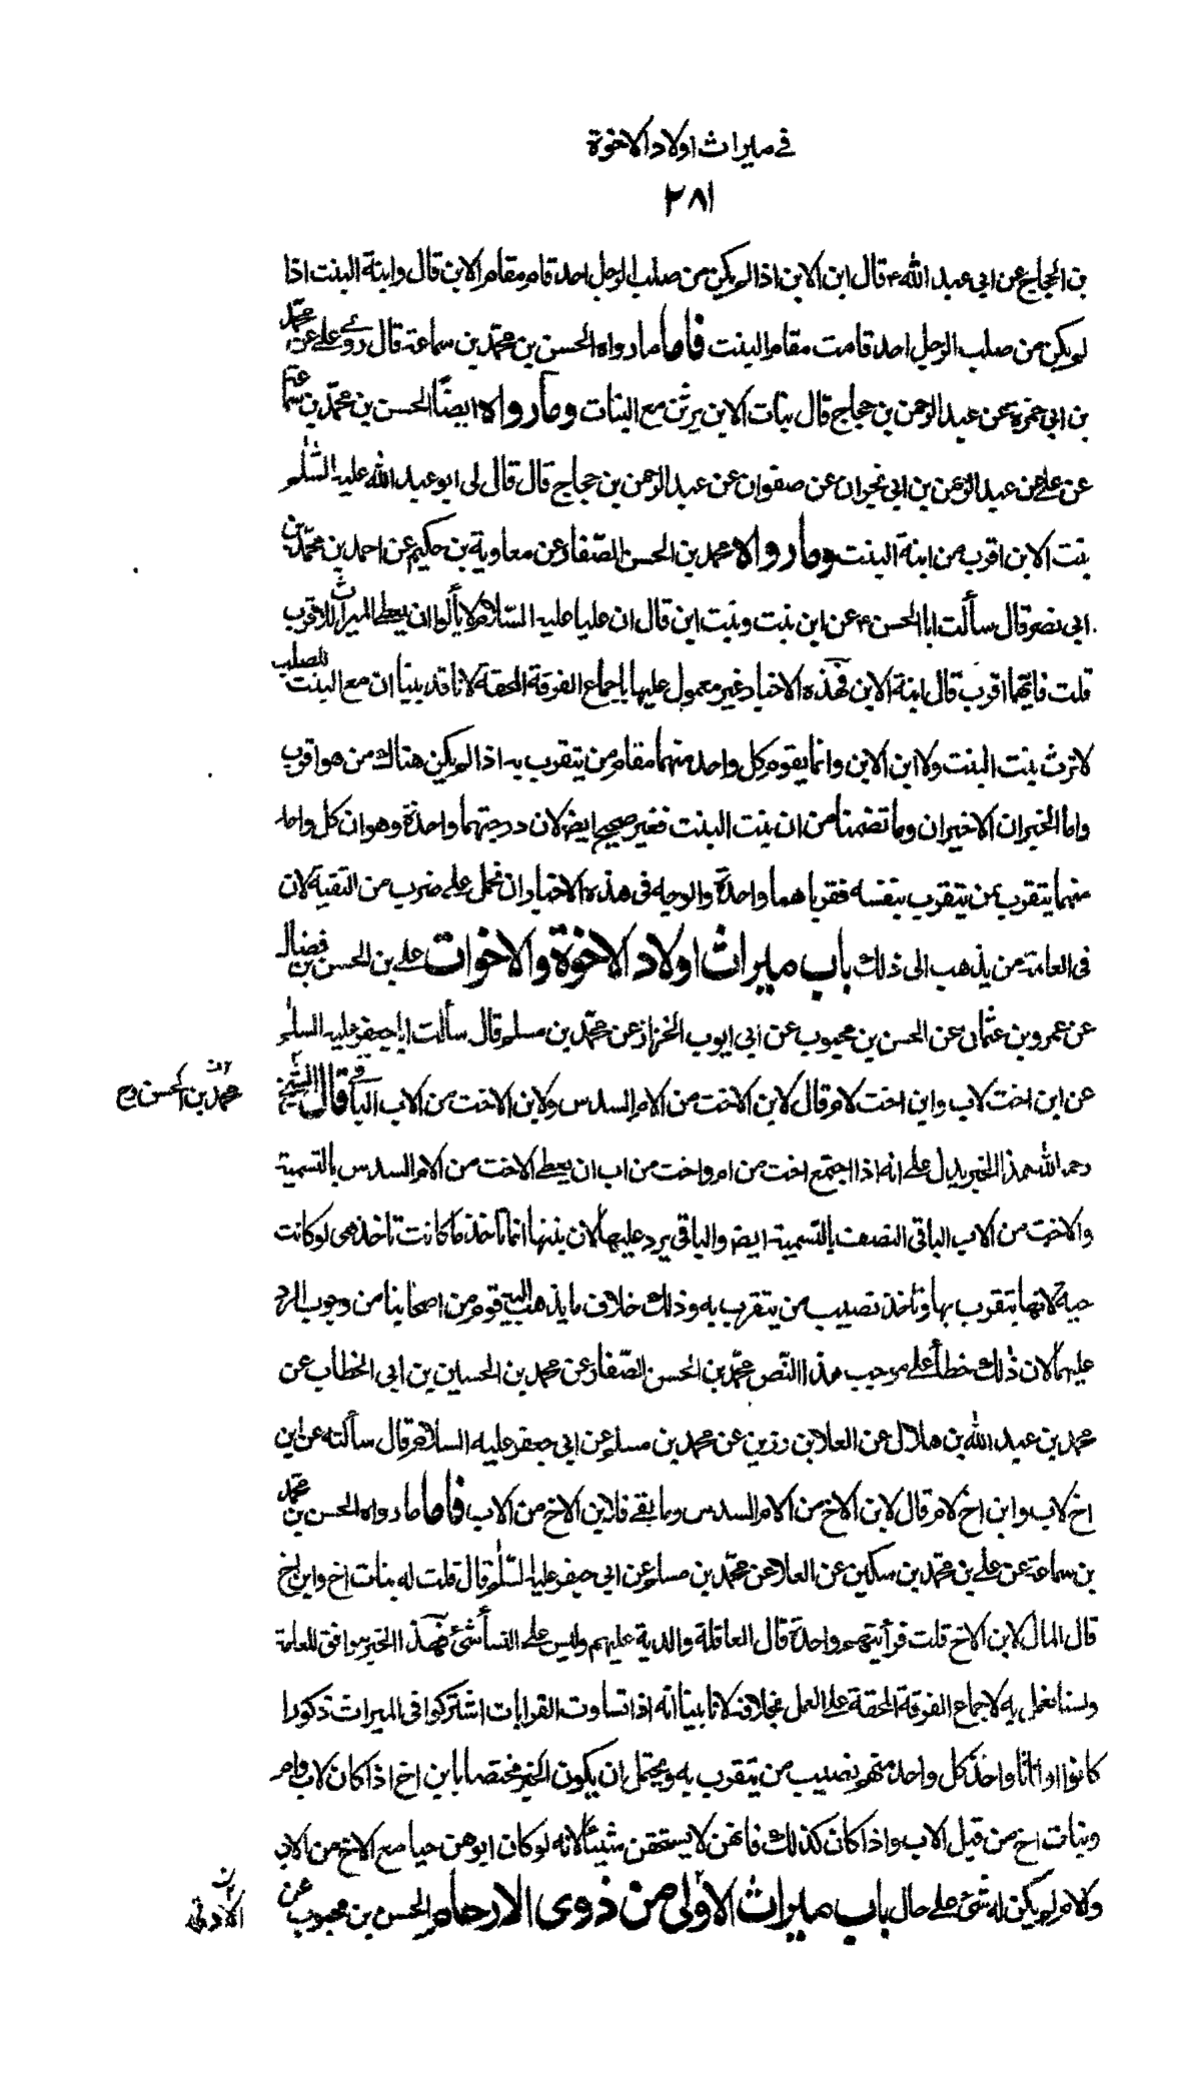 في ميراث اولاد الاخوة
٢٨١
بن الحجاج عن ابي عبد الله ع قال ابن الابن اذا لم يكن من صلب الرجل احد قام مقام الابن قال وابنة البنت اذا
لم يكن من صلب الرجل احد قامت مقام البنت فاما ما رواه الحسن بن محمد بن سماعة قال روى علي عن محمد
بن ابي حمزة عن عبد الرحمن بن حجاج قال بنات الابن يرثن مع البنات وما رواه ايضا الحسن بن محمد بن سماعة
عن علي عن عبد الرحمن بن ابي نجران عن صفوان عن عبد الرحمن بن حجاج قال قال لى ابو عبد الله عليه السلم
بنت الابن اقرب من ابنة البنت وما رواه محمد بن الحسن الصفار عن معاوية بن حكيم عن احمد بن محمد بن
ابي نصر قال سألت ابا الحسن ع عن ابن بنت وبنت ابن قال ان عليا عليه السلام لا يألو ان يعطى الميراث للاقرب
قلت فايهما اقرب قال ابنة الابن فهذه الاخبار غير معمول عليها باجماع الفرقة المحقة لانا قد بينا ان مع البنت للصلب
لا ترث بنت البنت ولا ابن الابن وانما يقوم كل واحد منهما مقام من يتقرب به اذا لم يكن هناك من هو اقرب
واما الخبران الاخيران وما تضمنا من ان بنت البنت فغير صحيح ايضا لان درجتهما واحدة وهو ان كل واحد
منهما يتقرب بمن يتقرب بنفسه فقرباهما واحدة والوجه في هذه الاخبار ان نحمل على ضرب من التقية لان
فى العامة من يذهب الى ذلك باب ميراث اولاد الاخوة والاخوات علي بن الحسن بن فضال
عن عمرو بن عثمان عن الحسن بن محبوب عن ابي ايوب الخزاز عن محمد بن مسلم قال سألت ابا جعفر عليه السلم
عن ابن اخت لاب وابن اخت لام قال لابن الاخت من الام السدس ولابن الاخت من الاب الباقى قال الشيخ
محمد بن الحسن
رحمه الله هذا الخبر يدل على انه اذا اجتمع اخت من ام واخت من اب ان يعطى الاخت من الام السدس بالتسمية
والاخت من الاب الباقى النصف بالتسمية ايضا والباقى يرد عليها لان بنتها انما تاخذ ما كانت تاخذ هى لو كانت
حية لانها يتقرب بها وتاخذ نصيب من يتقرب به وذلك خلاف ما يذهب اليه قوم من اصحابنا من وجوب الرد
عليهما لان ذلك خطأ على موجب هذا النص محمد بن الحسن الصفار عن محمد بن الحسين بن ابي الخطاب عن
محمد بن عبد الله بن هلال عن العلا بن رزين عن محمد بن مسلم عن ابي جعفر عليه السلام قال سألته عن ابن
اخ لاب وابن اخ لام قال لابن الاخ من الام السدس وما بقي فلابن الاخ من الاب فاما ما رواه الحسن بن محمد
بن سماعة عن علي بن محمد بن سكين عن العلا عن محمد بن مسلم عن ابي جعفر عليه السلم قال قلت له بنات اخ وابن اخ
قال المال لابن الاخ قلت قرابتهم واحدة قال العاقلة والدية عليهم وليس على النسأ شئ فهذا الخبر موافق للعامة
ولسنا نعمل به لاجماع الفرقة المحقة على العمل بخلافه لانا بينا انه اذا تساوت القرابات اشتركوا فى الميراث ذكورا
كانوا او اناثا واخذ كل واحد منهم نصيب من يتقرب به ويحتمل ان يكون الخبر مختصا بابن اخ اذا كان لاب وام
وبنات اخ من قبل الاب واذا كان كذلك فانهن لا يستحقن شيئا لانه لو كان ابوهن حيا مع الاخ من الاب
والام لم يكن له شئ على حال باب ميراث الاولى من ذوى الارحام الحسن بن محبوب عن